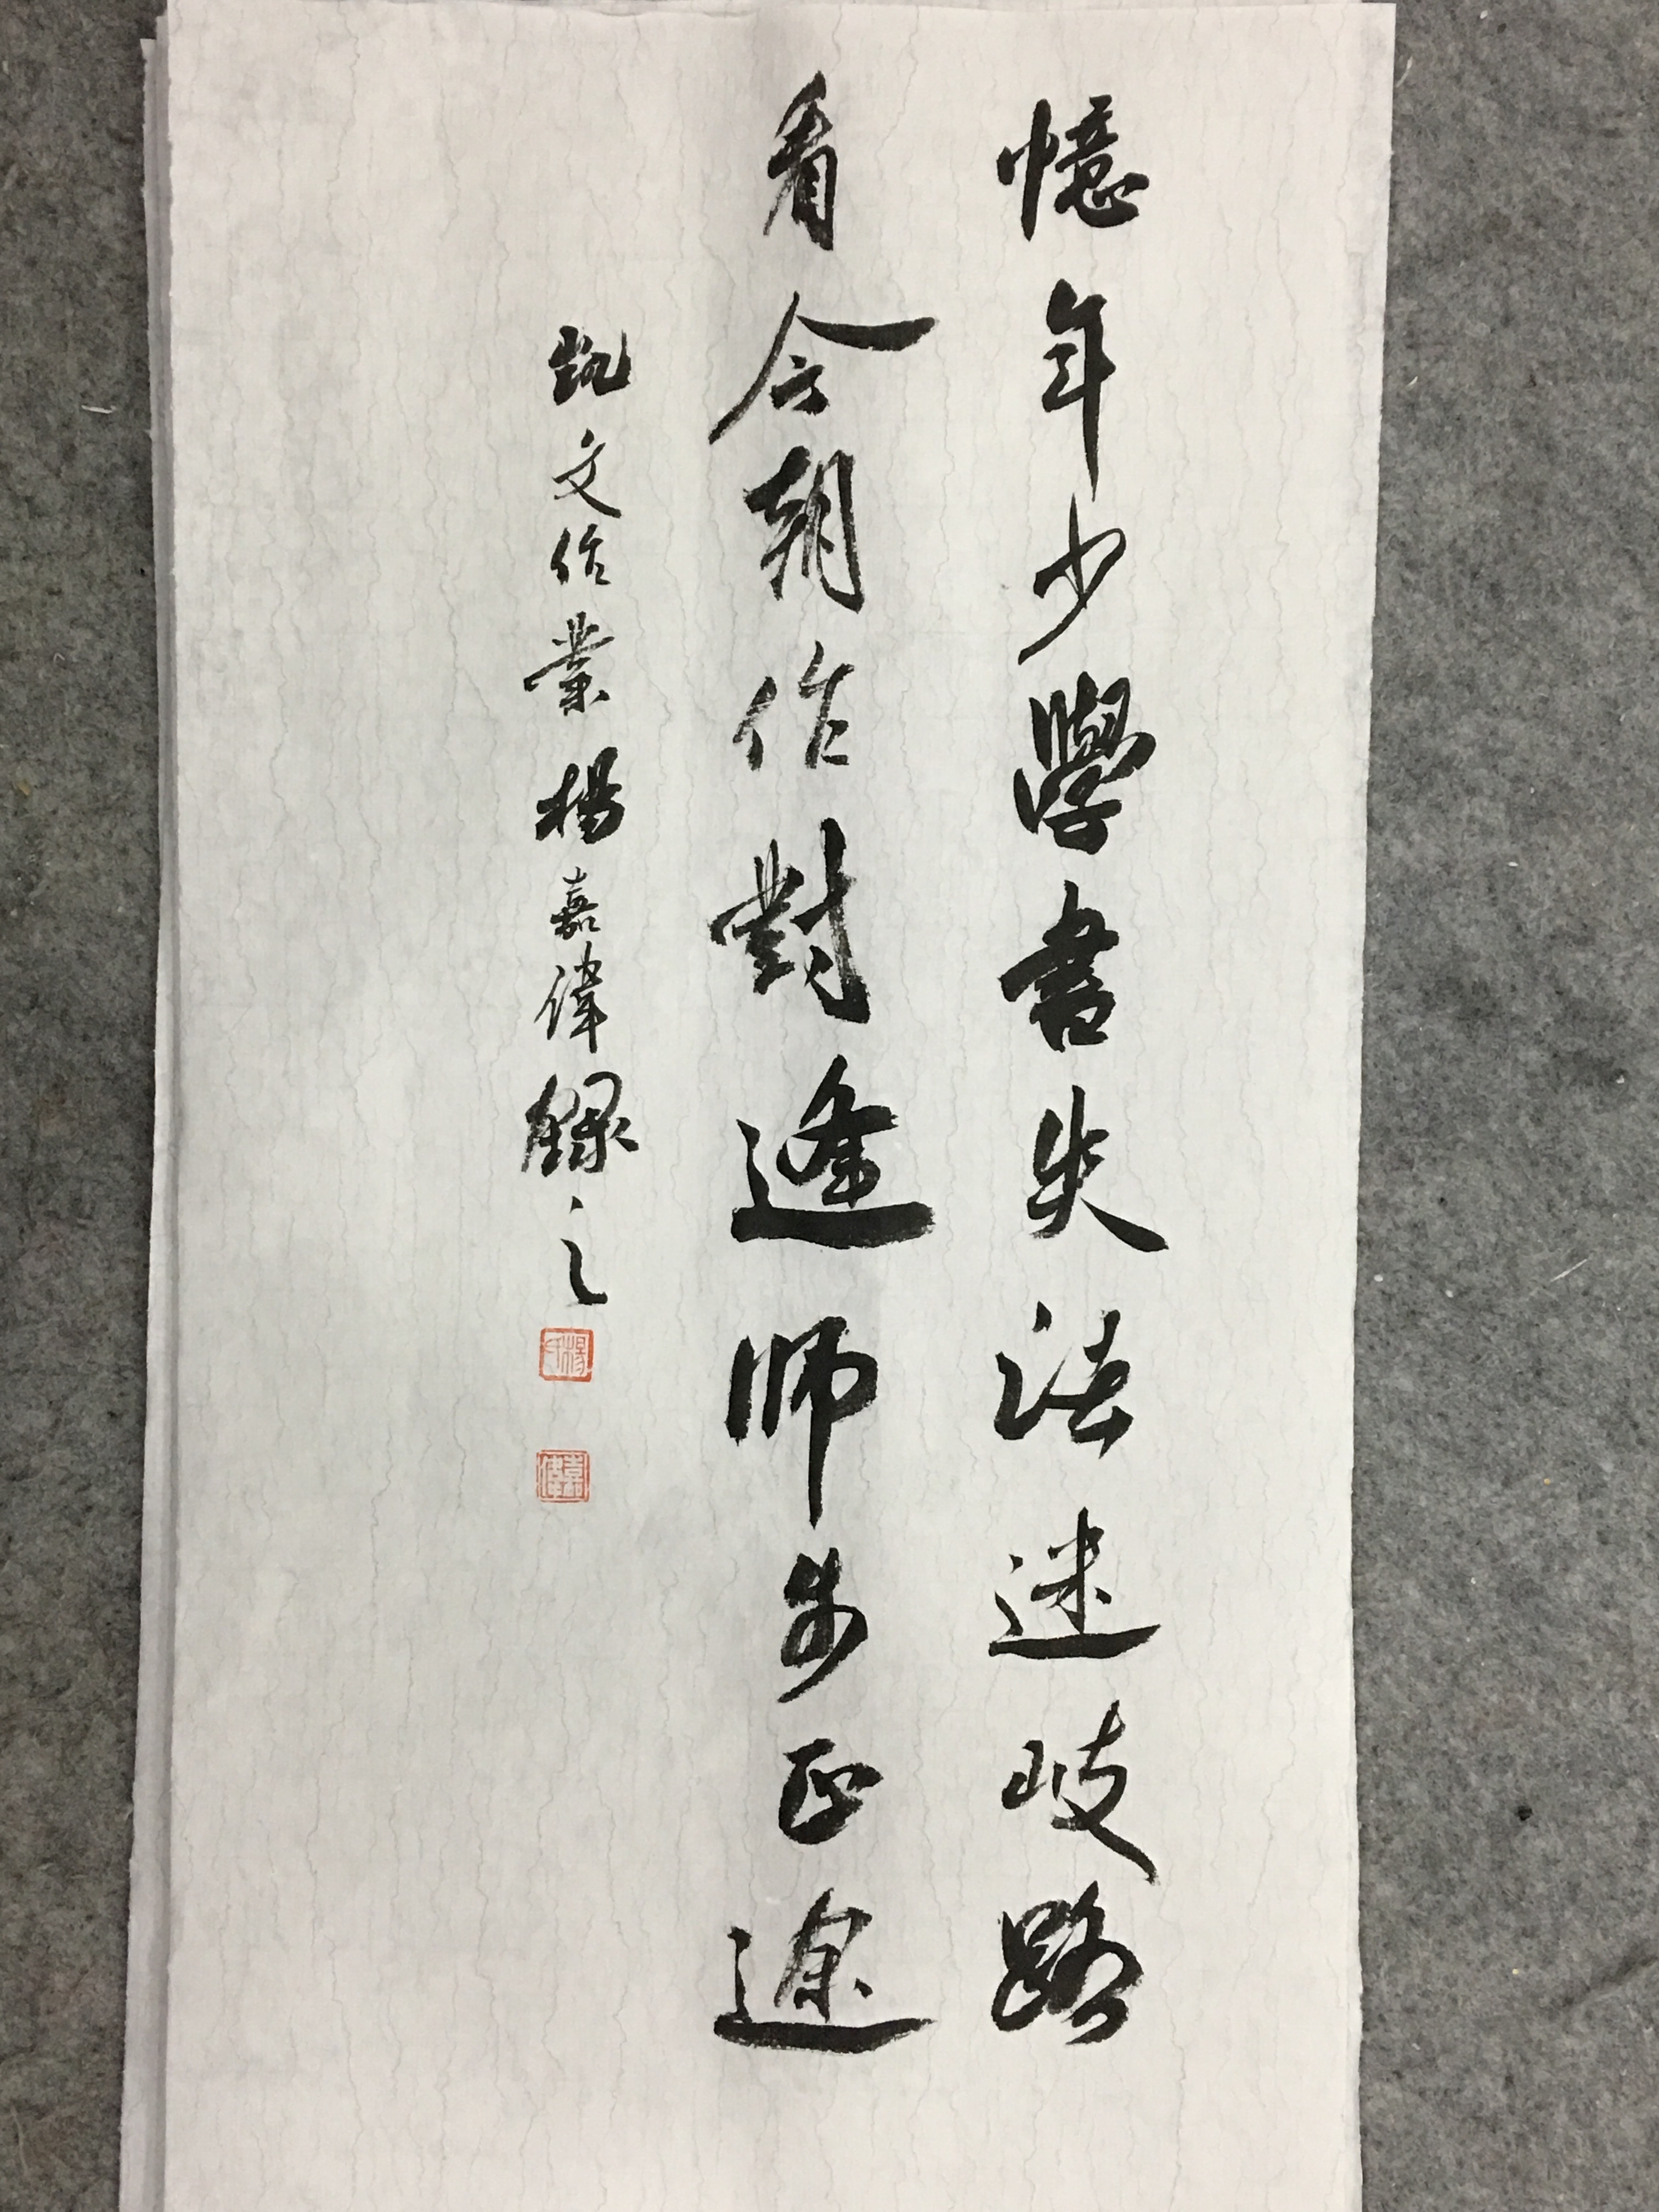 憶年少學書失法迷歧路
看今朝作對逢师步正途
凯文作業楊嘉偉録之
楊氏
嘉偉